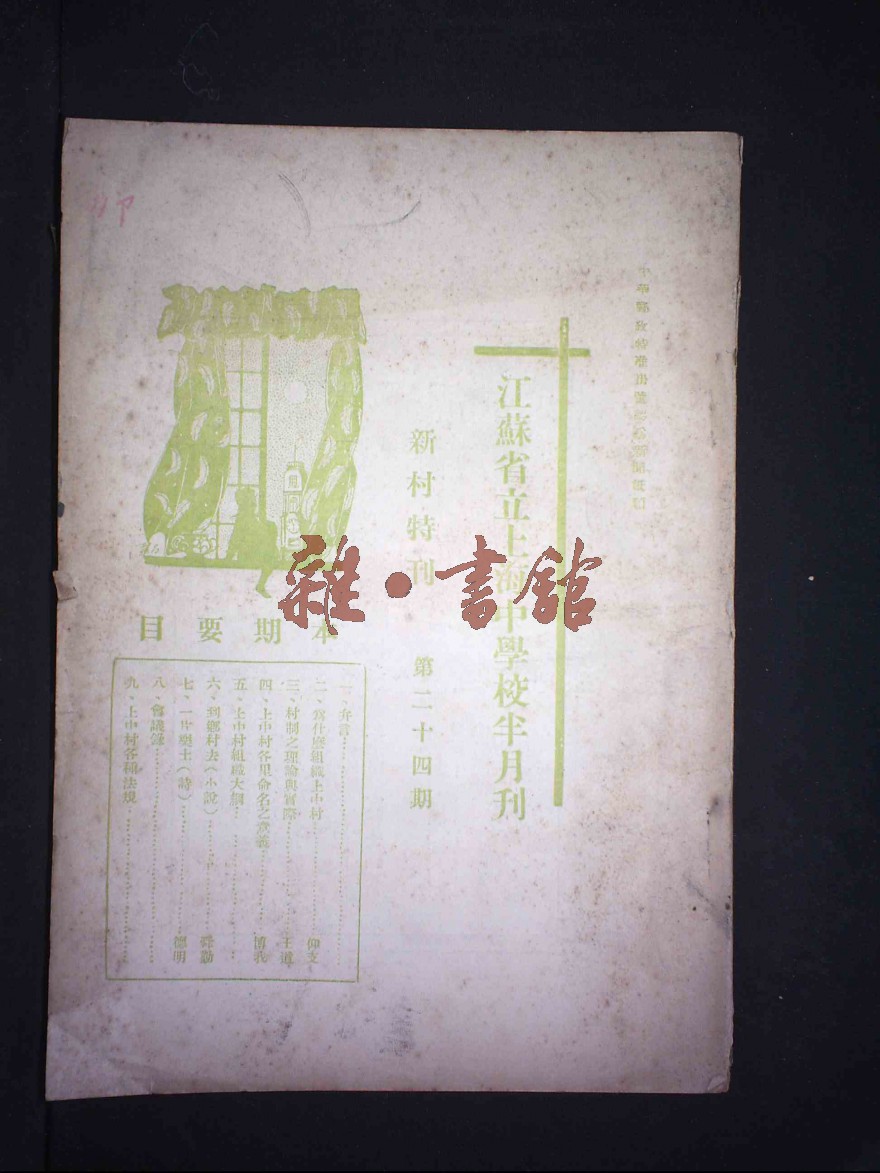 中華郵政特准掛號認為新聞紙類
江蘇省立上海中學校半月刊
新村特刊 第二十四期
雜·書館
本期要目
一、弁言
二、為什麼組織上中村 仰支
三、村制之理論與實際 王道
四、上中村各里命名之意義 博我
五、上中村組織大綱
六、到鄉村去(小說)
七、一片樂土(詩) 德明
八、會議錄
九、上中村各種法規